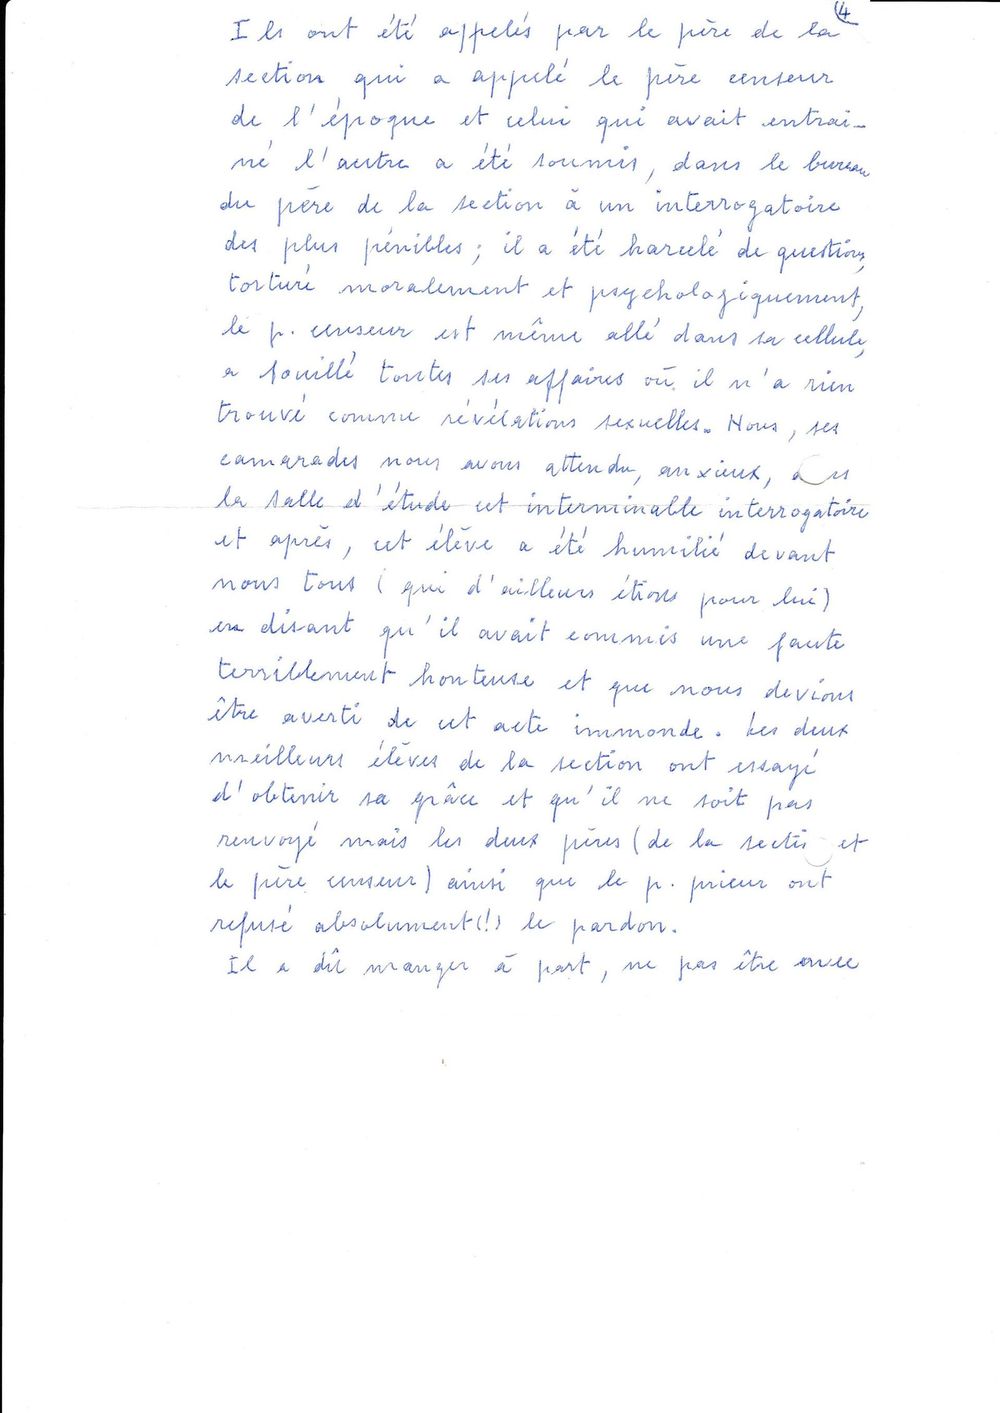 4
Ils ont été appelés par le père de la
section qui a appelé le père censeur
de l'époque et celui qui avait entrai-
né l'autre a été soumis, dans le bureau
du père de la section à un interrogatoire
des plus pénibles ; il a été harcelé de questions,
torturé moralement et psychologiquement,
le p. censeur est même allé dans sa cellule,
a fouillé toutes ses affaires où il n'a rien
trouvé comme révélations sexuelles. Nous, ses
camarades nous avons attendu, anxieux,
la salle d'étude cet interminable interrogatoire
et après, cet élève a été humilié devant
nous tous (qui d'ailleurs étions pour lui)
en disant qu'il avait commis une faute
terriblement honteuse et que nous devions
être averti de cet acte immonde. Les deux
meilleurs élèves de la section ont essayé
d'obtenir sa grâce et qu'il ne soit pas
renvoyé mais les deux pères (de la secti et
le père censeur) ainsi que le p. prieur ont
refusé absolument (!) le pardon.
Il a dû manger à part, ne pas être avec